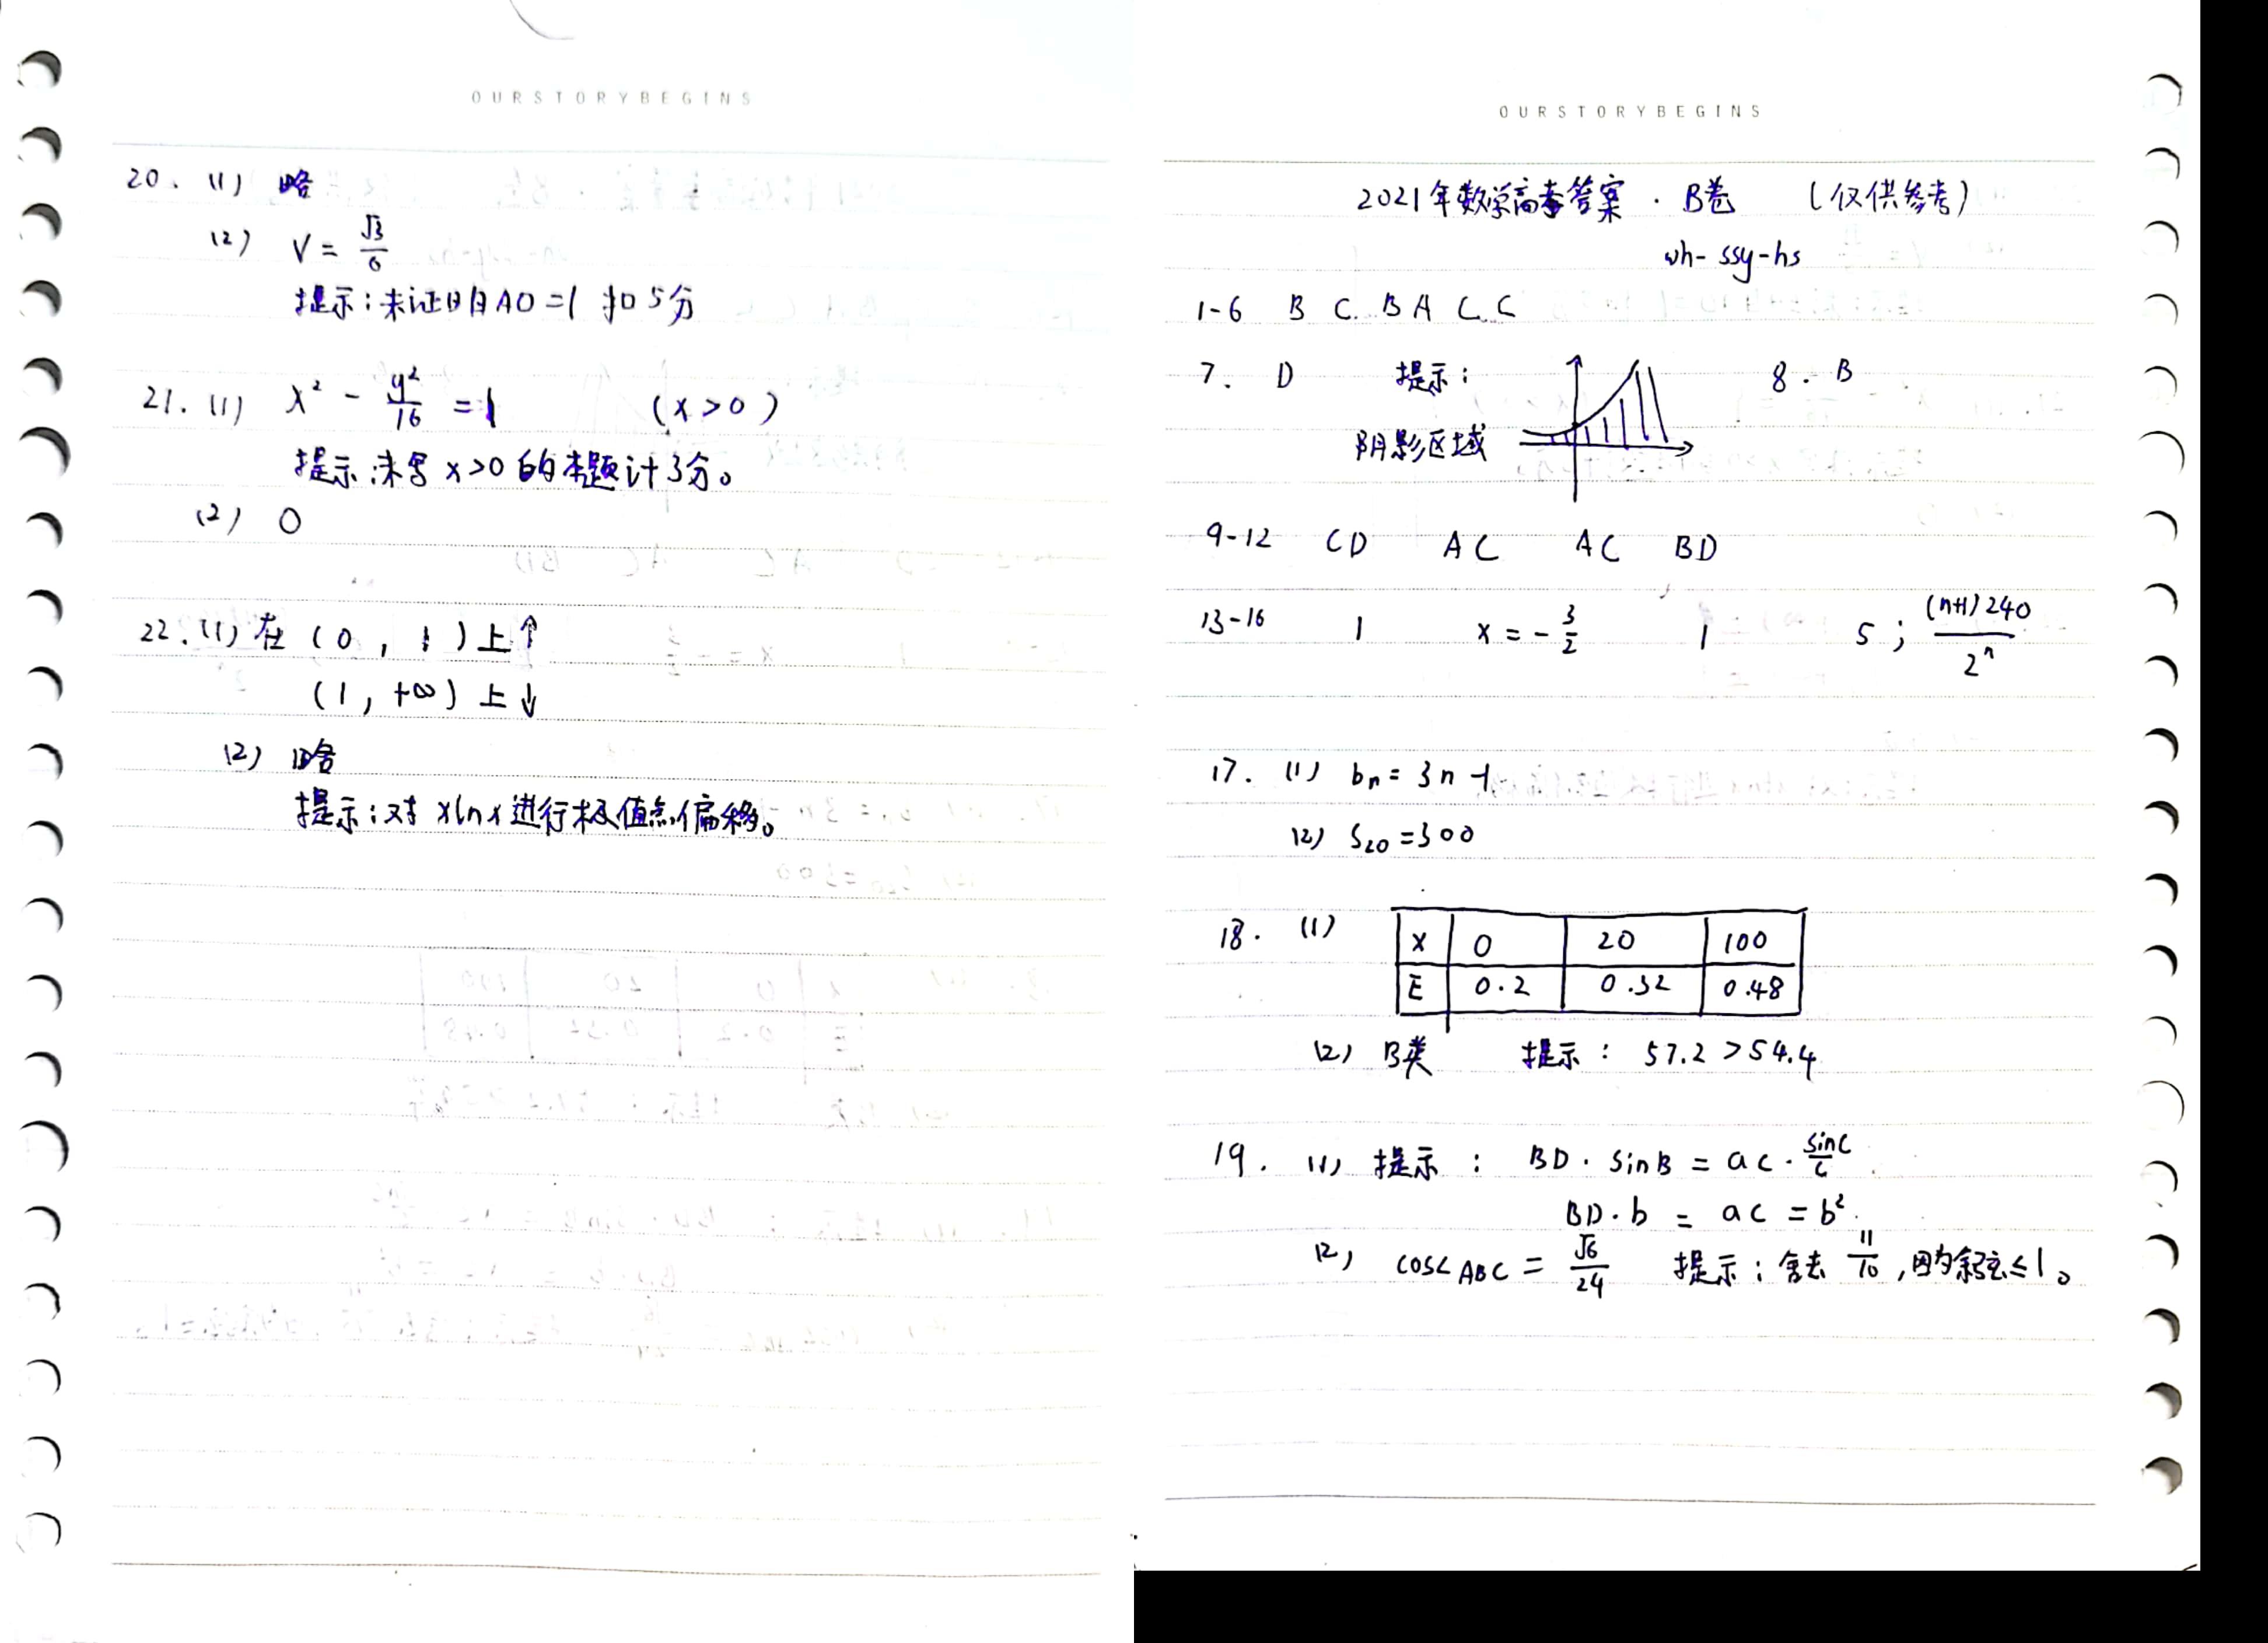 OURSTORYBEGINS
20. (1) 略
(2) V = √3/6
提示:未证明AO=1 扣5分
21. (1) x² - y²/16 = 1 (x>0)
提示:未写 x>0 的本题计3分。
(2) 0
22. (1) 在 (0, 1) 上↑
(1, +∞) 上↓
(2) 略
提示:对 xlnx 进行极值点偏移。
OURSTORYBEGINS
2021年数学高考答案 · B卷 (仅供参考)
wh-ssy-hs
1-6 B C B A C C
7. D 提示: 8. B
阴影区域
9-12 CD AC AC BD
13-16 1 x = -3/2 1 5; (n+1)240/2ⁿ
17. (1) bₙ = 3n-1
(2) S₂₀ = 300
18. (1)
X 0 20 100
E 0.2 0.32 0.48
(2) B类 提示: 57.2 > 54.4
19. (1) 提示: BD · sinB = ac · sinC/c
BD · b = ac = b²
(2) cos∠ABC = √6/24 提示:舍去 11/10,因为余弦≤1。